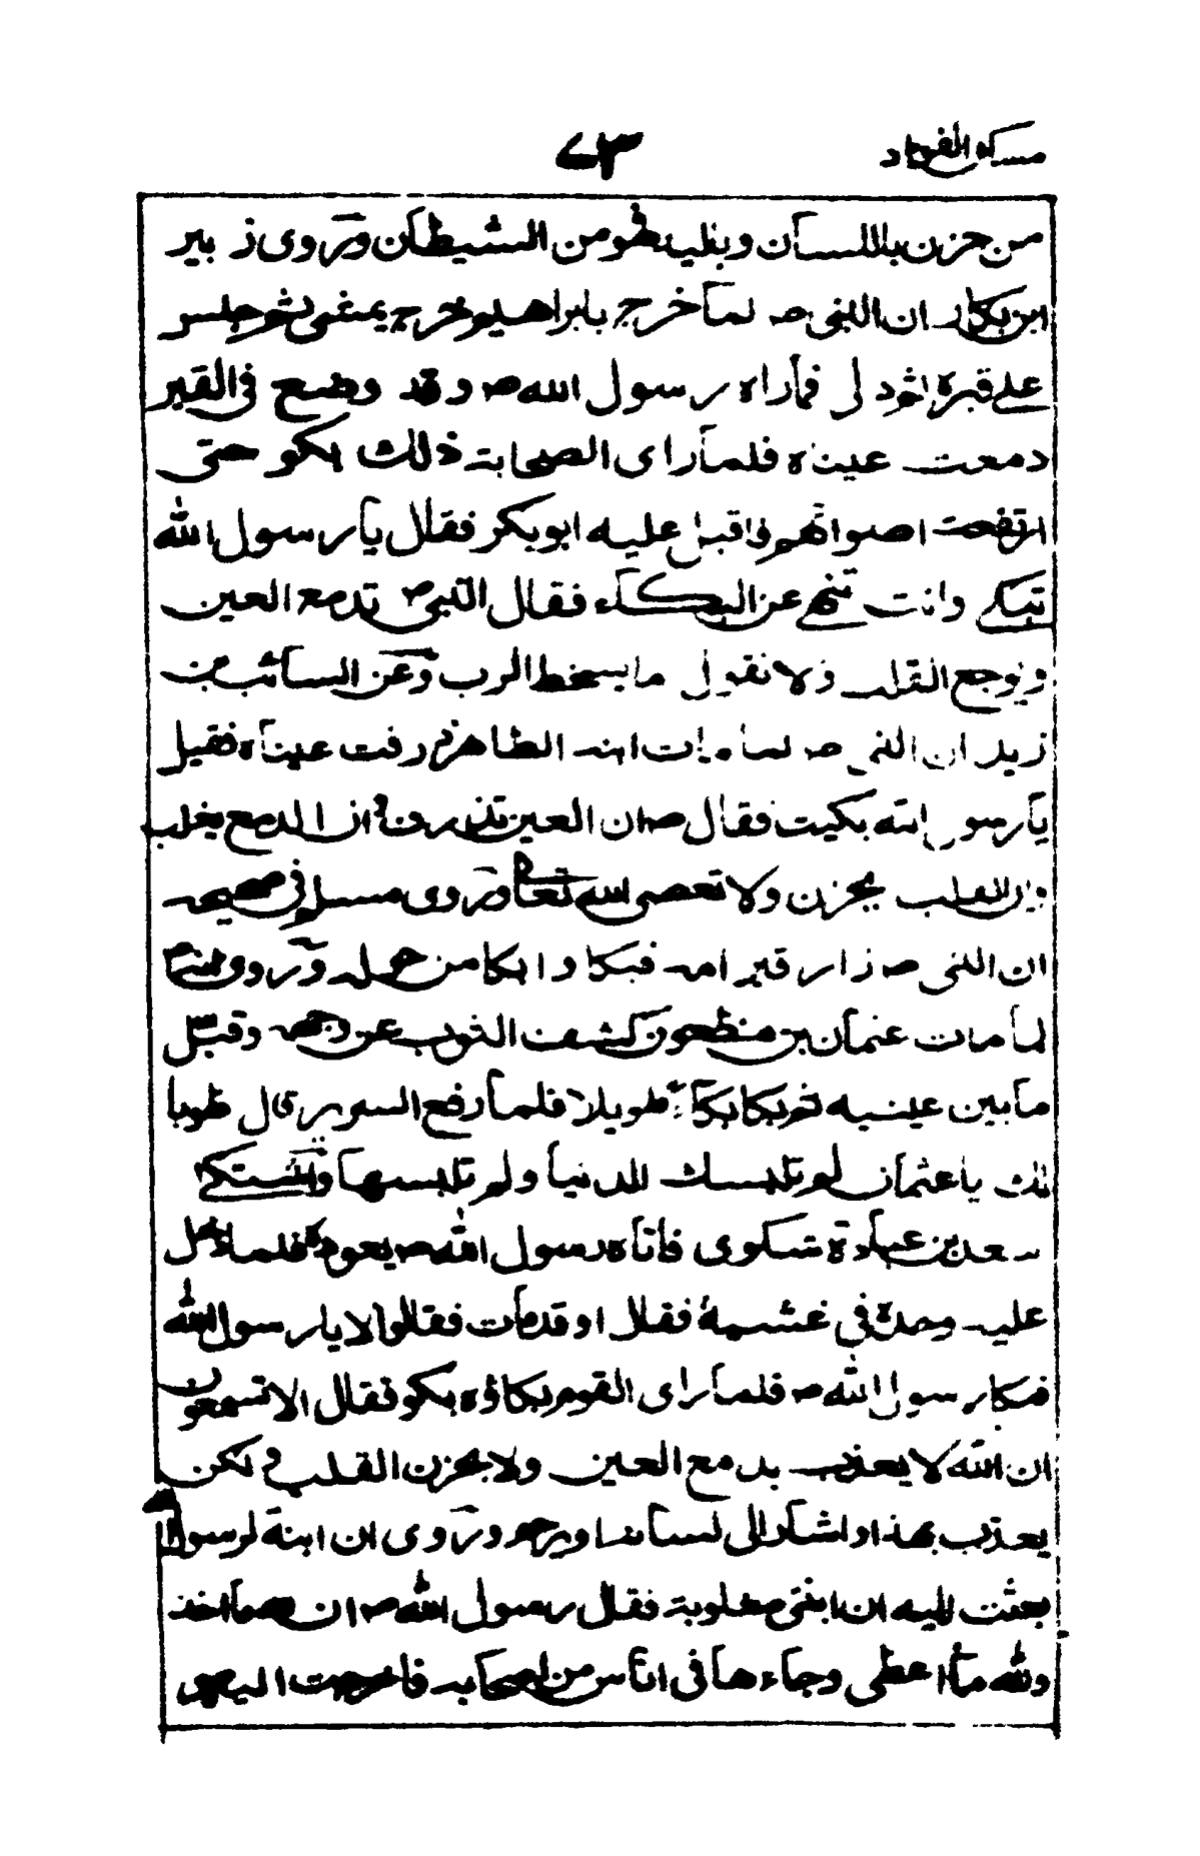 مسكن الفواد ٧٣
من حزن باللسان وباليد فهو من الشيطان وروى زبير
ابن بكار ان النبى ص لما خرج بابراهيم خرج يمشى ثم جلس
على قبره ثم دلى فلما راه رسول الله ص وقد وضع فى القبر
دمعت عيناه فلما راى الصحابة ذلك بكو حتى
ارتفعت اصواتهم فاقبل عليه ابوبكر فقال يا رسول الله
تبكى وانت تنهى عن البكاء فقال النبى ص تدمع العين
ويوجع القلب ولا نقول ما يسخط الرب وعن السائب بن
زيد ان النبى ص لما مات ابنه الطاهر ذرفت عيناه فقيل
يا رسول الله بكيت فقال ص ان العين تذرف وان الدمع يغلب
وان القلب يحزن ولا نعصى الله تعالى وروى مسلم فى صحيحه
ان النبى ص زار قبر امه فبكا وابكا من حوله وروى
لما مات عثمان بن مظعون كشف الثوب عن وجهه وقبل
ما بين عينيه ثم بكا بكاء طويلا فلما رفع السرير قال طوبا
لك يا عثمان لم تلبسك الدنيا ولم تلبسها واشتكى
سعد بن عبادة شكوى فاتاه رسول الله ص يعوده فلما دخل
عليه وجده فى غشية فقال او قد مات فقالوا لا يا رسول الله
فبكا رسول الله ص فلما راى القوم بكاؤه بكو فقال الا تسمعون
ان الله لا يعذب بدمع العين ولا بحزن القلب ولكن
يعذب بهذا واشار الى لسانه او يرحم وروى ان ابنة لرسول الله
بعثت اليه ان ابنتى مغلوبة فقال رسول الله ص ان لله ما اخذ
ولله ما اعطى وجاءها فى اناس من اصحابه فاخرجت اليه